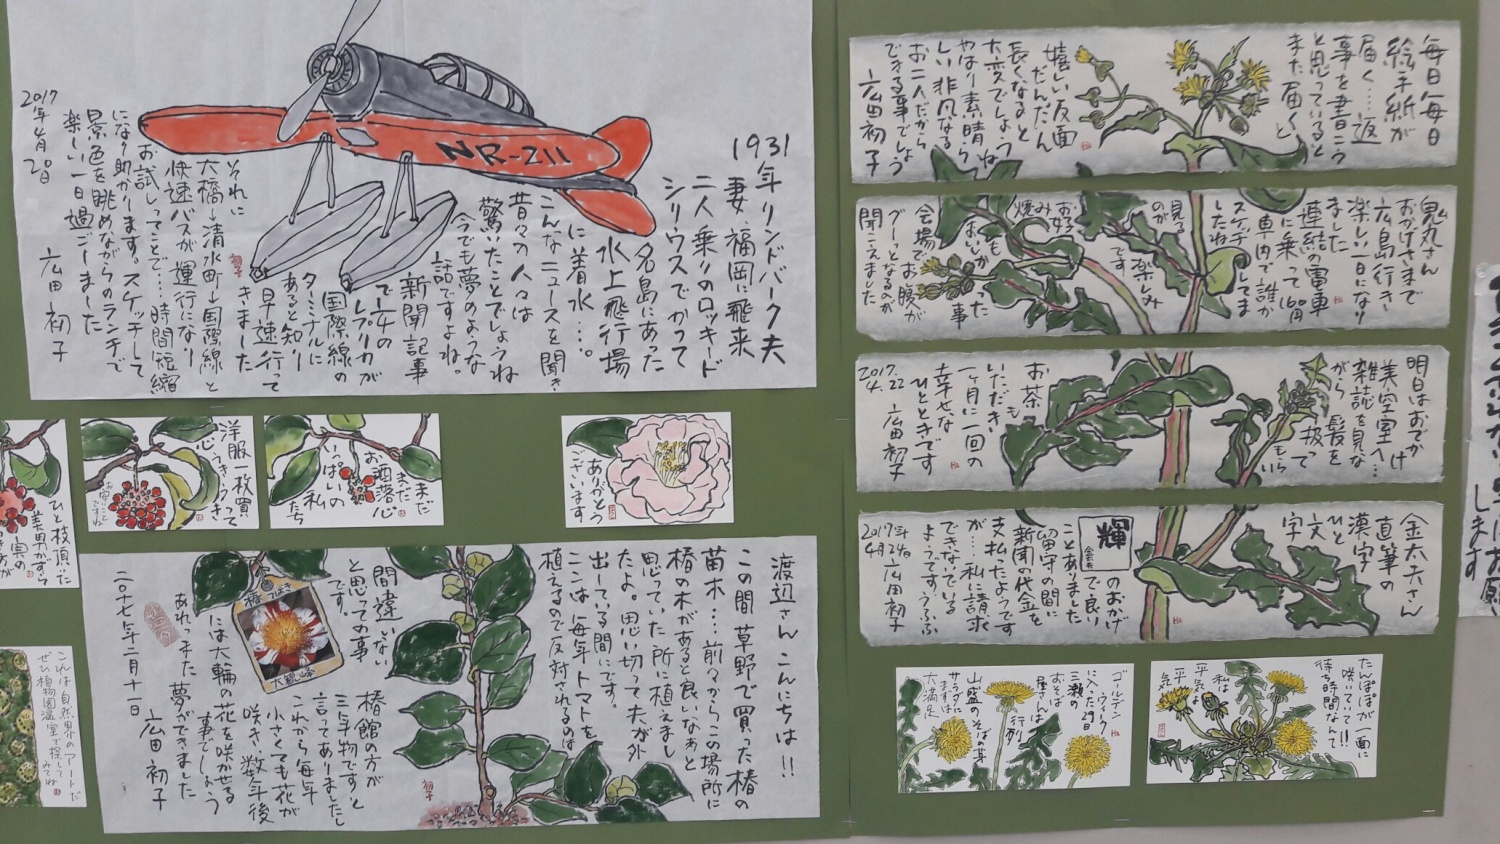 1931年リンドバーク夫
妻、福岡に飛来
二人乗りのロッキード
シリウスでかつて
名島にあった
水上飛行場
に着水…。
こんなニュースを聞き
昔々の人々は
驚いたことでしょうね
今でも夢のような
話ですよね。
新聞記事
で一/4の
レプリカが
国際線の
ターミナルに
あると知り
早速行って
きました
それに
大橋→清水町→国際線と
快速バスが運行になり
お試しってことで…時間短縮
になり助かります。スケッチして
景色を眺めながらのランチで
楽しい一日過ごしました
広田初子
2017年4月20日
NR-211
毎日毎日
絵手紙が
届く…返
事を書こう
と思っていると
また届くと
嬉しい反面
だんだん
長くなると
大変でしょうね
やはり素晴ら
しい非凡なる
お二人だから
できる事でしょう
広田初子
鬼丸さん
おかげさまで
広島行き
楽しい一日になり
ました
連結の電車
に乗って160円
車内で誰か
スケッチしてま
したね
見る
のが
楽しみ
です
お好
み
焼
もおいしか
った
事
会場でお腹が
グーっとなるのが
聞こえました
明日はおでかけ
美容室へ…
雑誌を見な
がら髪を
扱って
もらい
お茶も
いただき
一ヶ月に一回の
幸せな
ひとときです
広田初子
2017.4.22
金太夫さん
直筆の
漢字
ひと
文
字
輝
のおかげ
で良い
ことありました
留守の間に
新聞の代金を
支払ったようです
が…私に請求
できないでいる
ようです。うふふ
広田初子
2017年4月24日
洋服一枚買って
心うきうき
まだまだ
お洒落心
いっぱいの
私たち
ありがとう
ございます
ひと枝頂いた
これは自然界のアートだ
ぜひ植物園温室で探して
みてね
渡辺さんこんにちは!!
この間草野で買った椿の
苗木…前々からこの場所に
椿の木があると良いなぁと
思っていた所に植えまし
たよ。思い切って夫が外
出している間にです。
ここは毎年トマトを
植えるので反対されるのは
間違いない
と思っての事
です。
椿館の方が
三年物ですと
言ってありましたし
これから毎年
小さくても花が
咲き数年後
には大輪の花を咲かせる
事でしょう
あれっまた夢ができました
広田初子
二〇十七年二月十一日
椿
つばき
大観峰
ゴールデン
ウィーク
に入った29日
三瀬の
おそば
屋さんは
行列
山盛のそばの芽
サラダに
ますは
大満足
たんぽぽが一面に
咲いていて!!
待ち時間なんて
私は
平気よ
平気
します